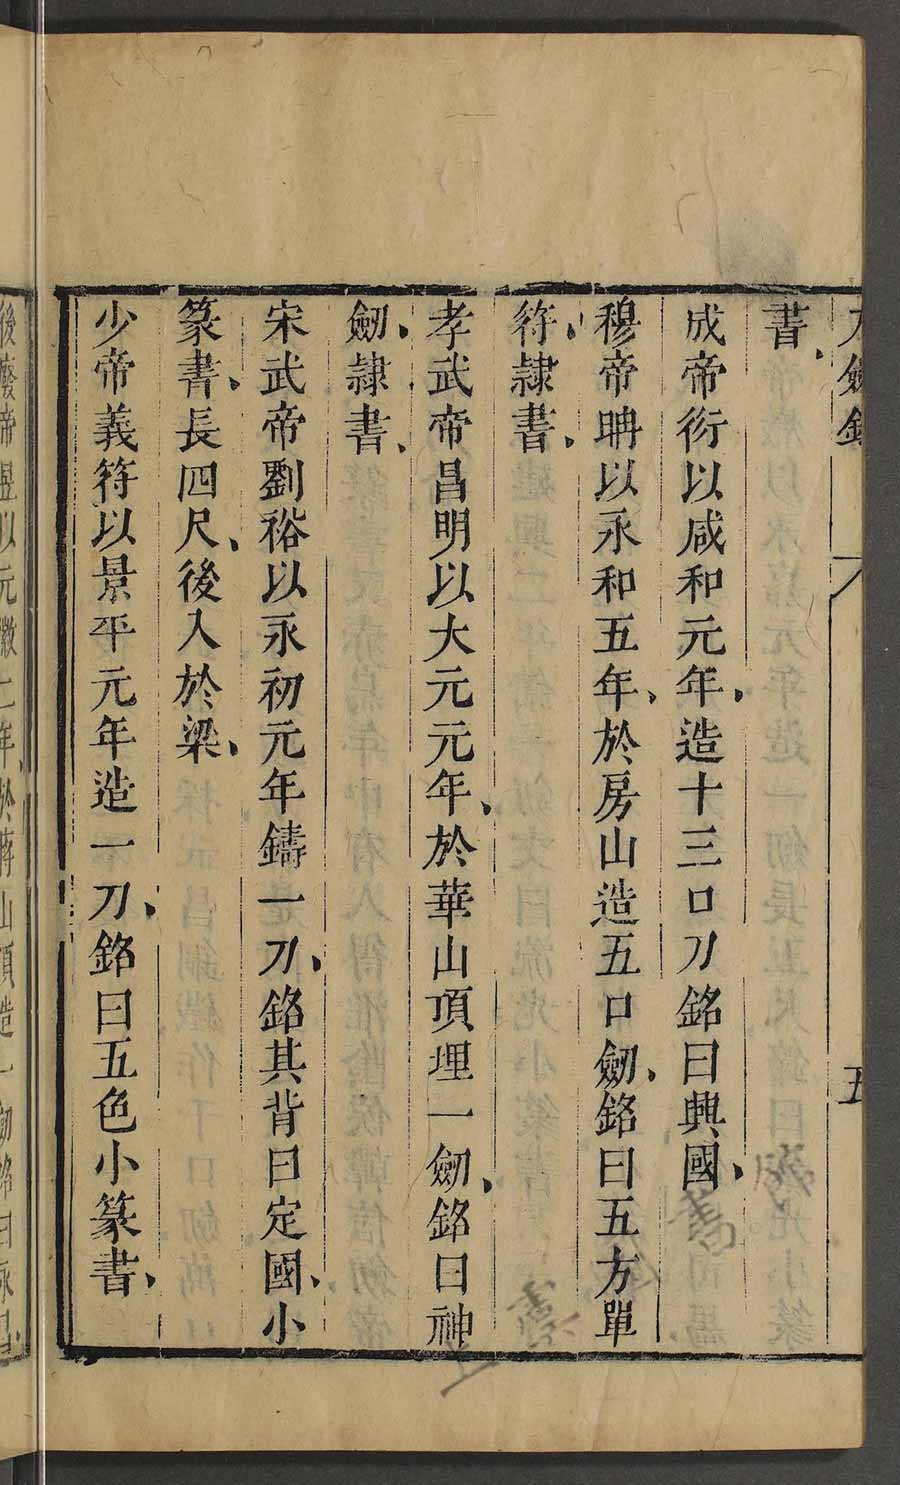 刀劍錄 五
書、
成帝衍以咸和元年、造十三口刀銘曰興國、
穆帝聃以永和五年、於房山造五口劒、銘曰五方單
符、隸書、
孝武帝昌明以大元元年、於華山頂埋一劒、銘曰神
劒、隸書、
宋武帝劉裕以永初元年鑄一刀、銘其背曰定國、小
篆書、長四尺、後入於梁、
少帝義符以景平元年造一刀、銘曰五色小篆書、
後廢帝昱以元徽二年、於蔣山頂造一劒銘曰永昌、